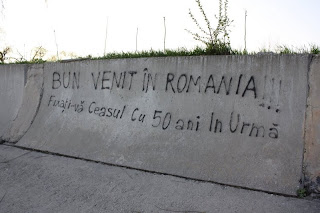 BUN VENIT ÎN ROMANIA!!!
Fixați-vă Ceasul Cu 50 ani În Urmă